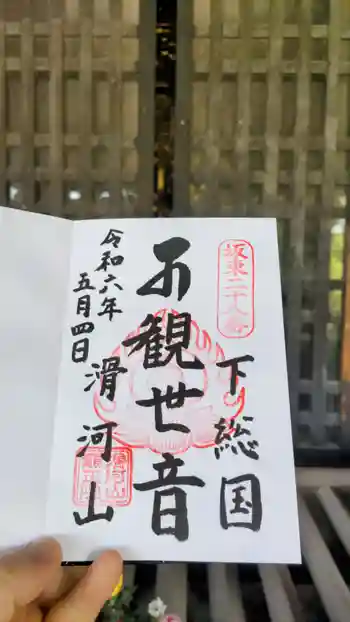 坂東二十八番
下総国
不観世音
滑河山
令和六年
五月四日